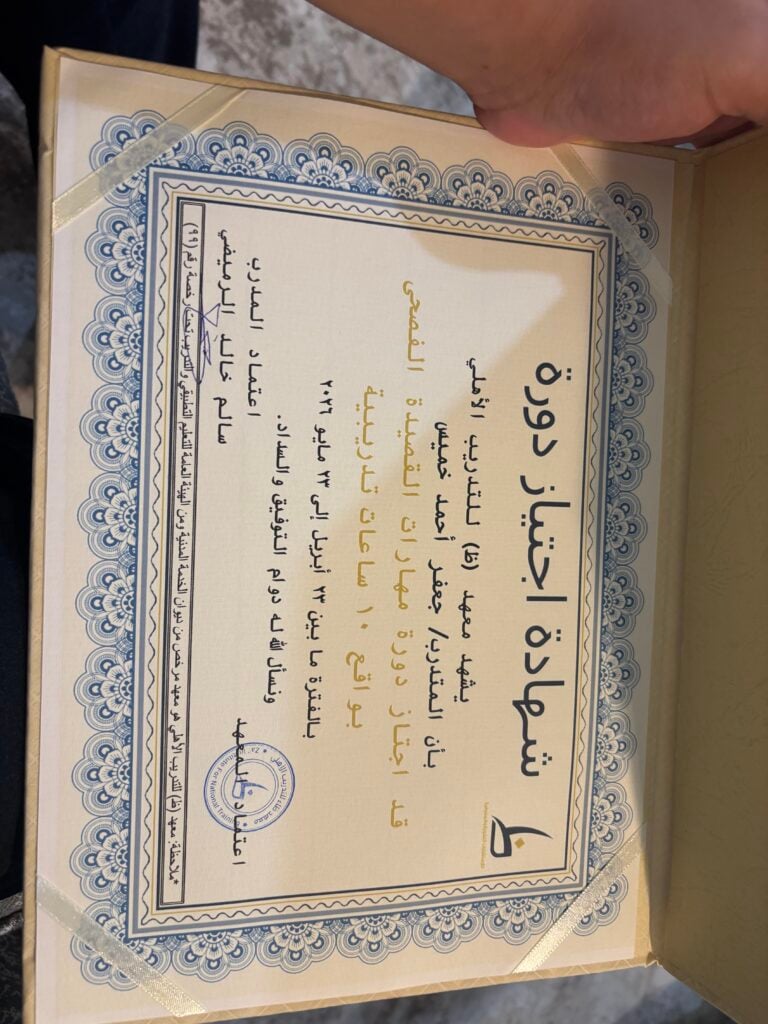 شهادة اجتياز دورة
يشهد معهد (ظ) للتدريب الأهلي
بأن المتدرب/ جعفر أحمد خميس
قد اجتاز دورة مهارات القصيدة الفصحى
بواقع ١٠ ساعات تدريبية
بالفترة ما بين ٢٣ أبريل إلى ٢٣ مايو ٢٠٢٦
ونسأل الله له دوام التوفيق والسداد.
اعتماد المعهد
اعتماد المدرب
سالم خالد الرميضي
*ملاحظة: معهد (ظ) للتدريب الأهلي هو معهد مرخص من ديوان الخدمة المدنية ومن الهيئة العامة للتعليم التطبيقي والتدريب تحت رخصة رقم (٩٩)